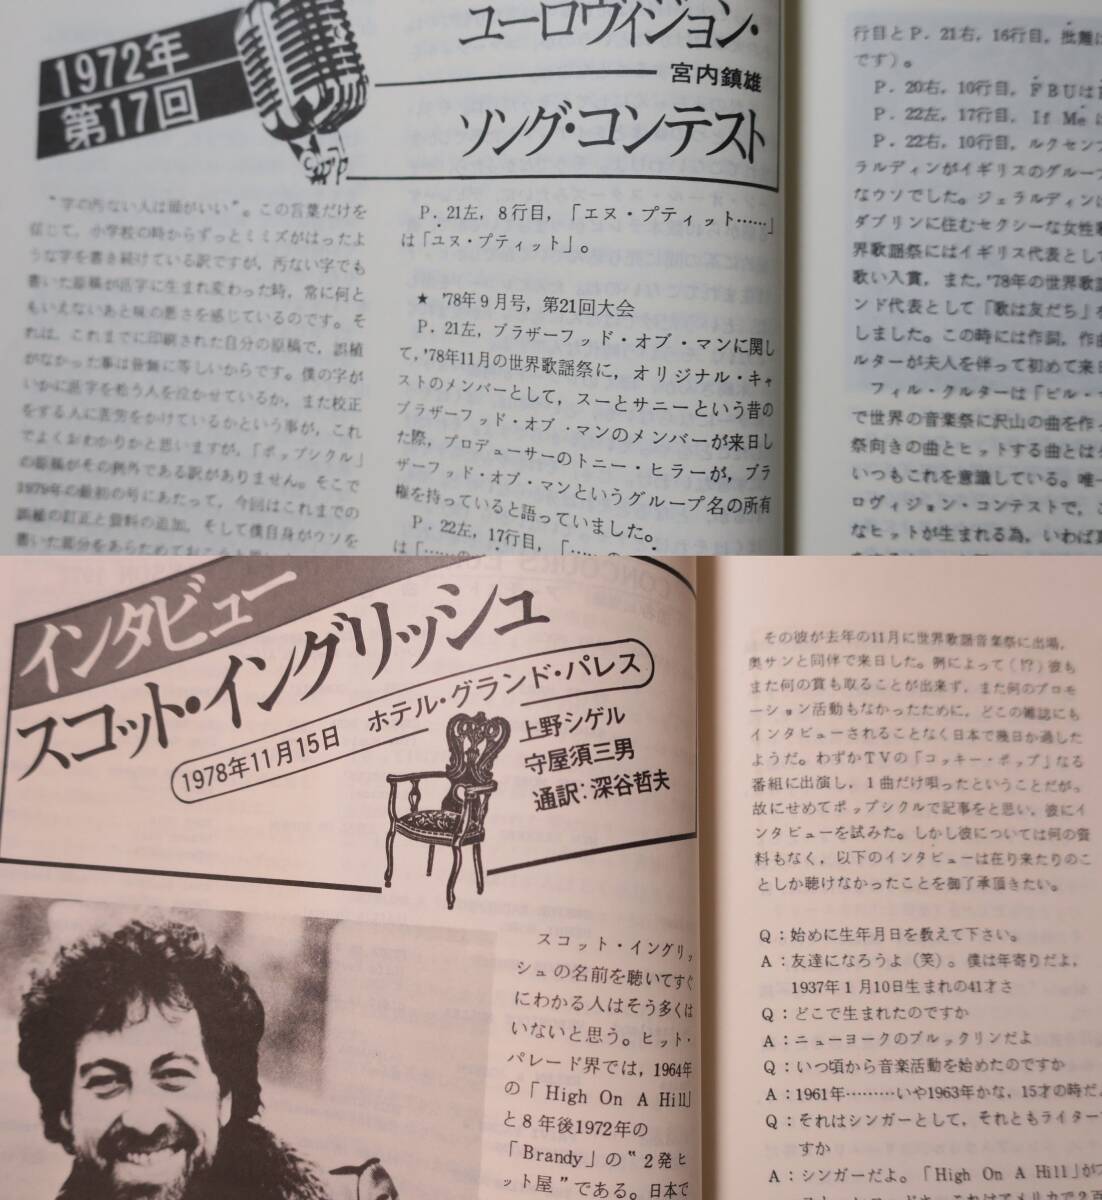 1972年
第17回
ユーロヴィジョン・
宮内鎮雄
ソング・コンテスト
“字の汚ない人は頭がいい”。この言葉だけを
信じて、小学校の時からずっとミミズがはったよ
うな字を書き続けている訳ですが、汚ない字でも
書いた原稿が活字に生まれ変わった時、常に何と
もいえないあと味の悪さを感じているのです。そ
れは、これまでに印刷された自分の原稿で、誤植
がなかった事は皆無に等しいからです。僕の字が
いかに活字を拾う人を泣かせているか、また校正
をする人に苦労をかけているかという事が、これ
でよくおわかりかと思いますが、「ポップシクル」
の原稿がその例外である訳がありません。そこで
1979年の最初の号にあたって、今回はこれまでの
誤植の訂正と資料の追加、そして僕自身がウソを
P．21左，8行目，「エヌ・プティット……」
は「ユヌ・プティット」。
★ '78年9月号，第21回大会
P．21左，ブラザーフッド・オブ・マンに関し
て，'78年11月の世界歌謡祭に，オリジナル・キャ
ストのメンバーとして，スーとサニーという昔の
ブラザーフッド・オブ・マンのメンバーが来日し
た際，プロデューサーのトニー・ヒラーが，ブラ
ザーフッド・オブ・マンというグループ名の所有
権を持っていると語っていました。
P．22左，17行目，「……の
は「……の
行目とP．21右，16行目，批難は
です）。
P．20右，10行目，FBUは
P．22左，17行目，If Me は
P．22右，10行目，ルクセン
ラルディンがイギリスのグルー
なウソでした。ジェラルディンは
ダブリンに住むセクシーな女性
界歌謡祭にはイギリス代表として
歌い入賞，また，'78年の世界歌
ンド代表として「歌は友だち」を
しました。この時には作詞，作
ルターが夫人を伴って初めて来日
フィル・クルターは「ビル・
で世界の音楽祭に沢山の曲を作っ
祭向きの曲とヒットする曲とは
いつもこれを意識している。唯一
ロヴィジョン・コンテストで，こ
なヒットが生まれる為，いわば
インタビュー
スコット・イングリッシュ
1978年11月15日　ホテル・グランド・パレス
上野シゲル
守屋須三男
通訳：深谷哲夫
スコット・イングリッ
シュの名前を聴いてすぐ
にわかる人はそう多くは
いないと思う。ヒット・
パレード界では，1964年
の「High On A Hill」
と8年後1972年の
「Brandy」の“2発ヒ
ット屋”である。日本で
その彼が去年の11月に世界歌謡音楽祭に出場，
奥サンと同伴で来日した。例によって（!?）彼も
また何の賞も取ることが出来ず，また何のプロモ
ーション活動もなかったために，どこの雑誌にも
インタビューされることなく日本で幾日か過した
ようだ。わずかTVの「コッキー・ポップ」なる
番組に出演し，1曲だけ唄ったということだが。
故にせめてポップシクルで記事をと思い，彼にイ
ンタビューを試みた。しかし彼については何の資
料もなく，以下のインタビューは在り来たりのこ
としか聴けなかったことを御了承頂きたい。
Q：始めに生年月日を教えて下さい。
A：友達になろうよ（笑）。僕は年寄りだよ，
1937年1月10日生まれの41才さ
Q：どこで生まれたのですか
A：ニューヨークのブルックリンだよ
Q：いつ頃から音楽活動を始めたのですか
A：1961年………いや1963年かな，15才の時だ
Q：それはシンガーとして，それともライター
すか
A：シンガーだよ。「High On A Hill」が